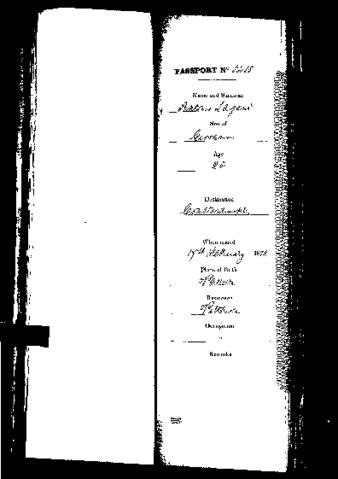 PASSPORT Nº
Name and Surname
Son of
Giovanni
Age
25
Destination
Constantinople
When issued
17th February
Place of Birth
Valletta
Residence
Valletta
Occupation
Remarks